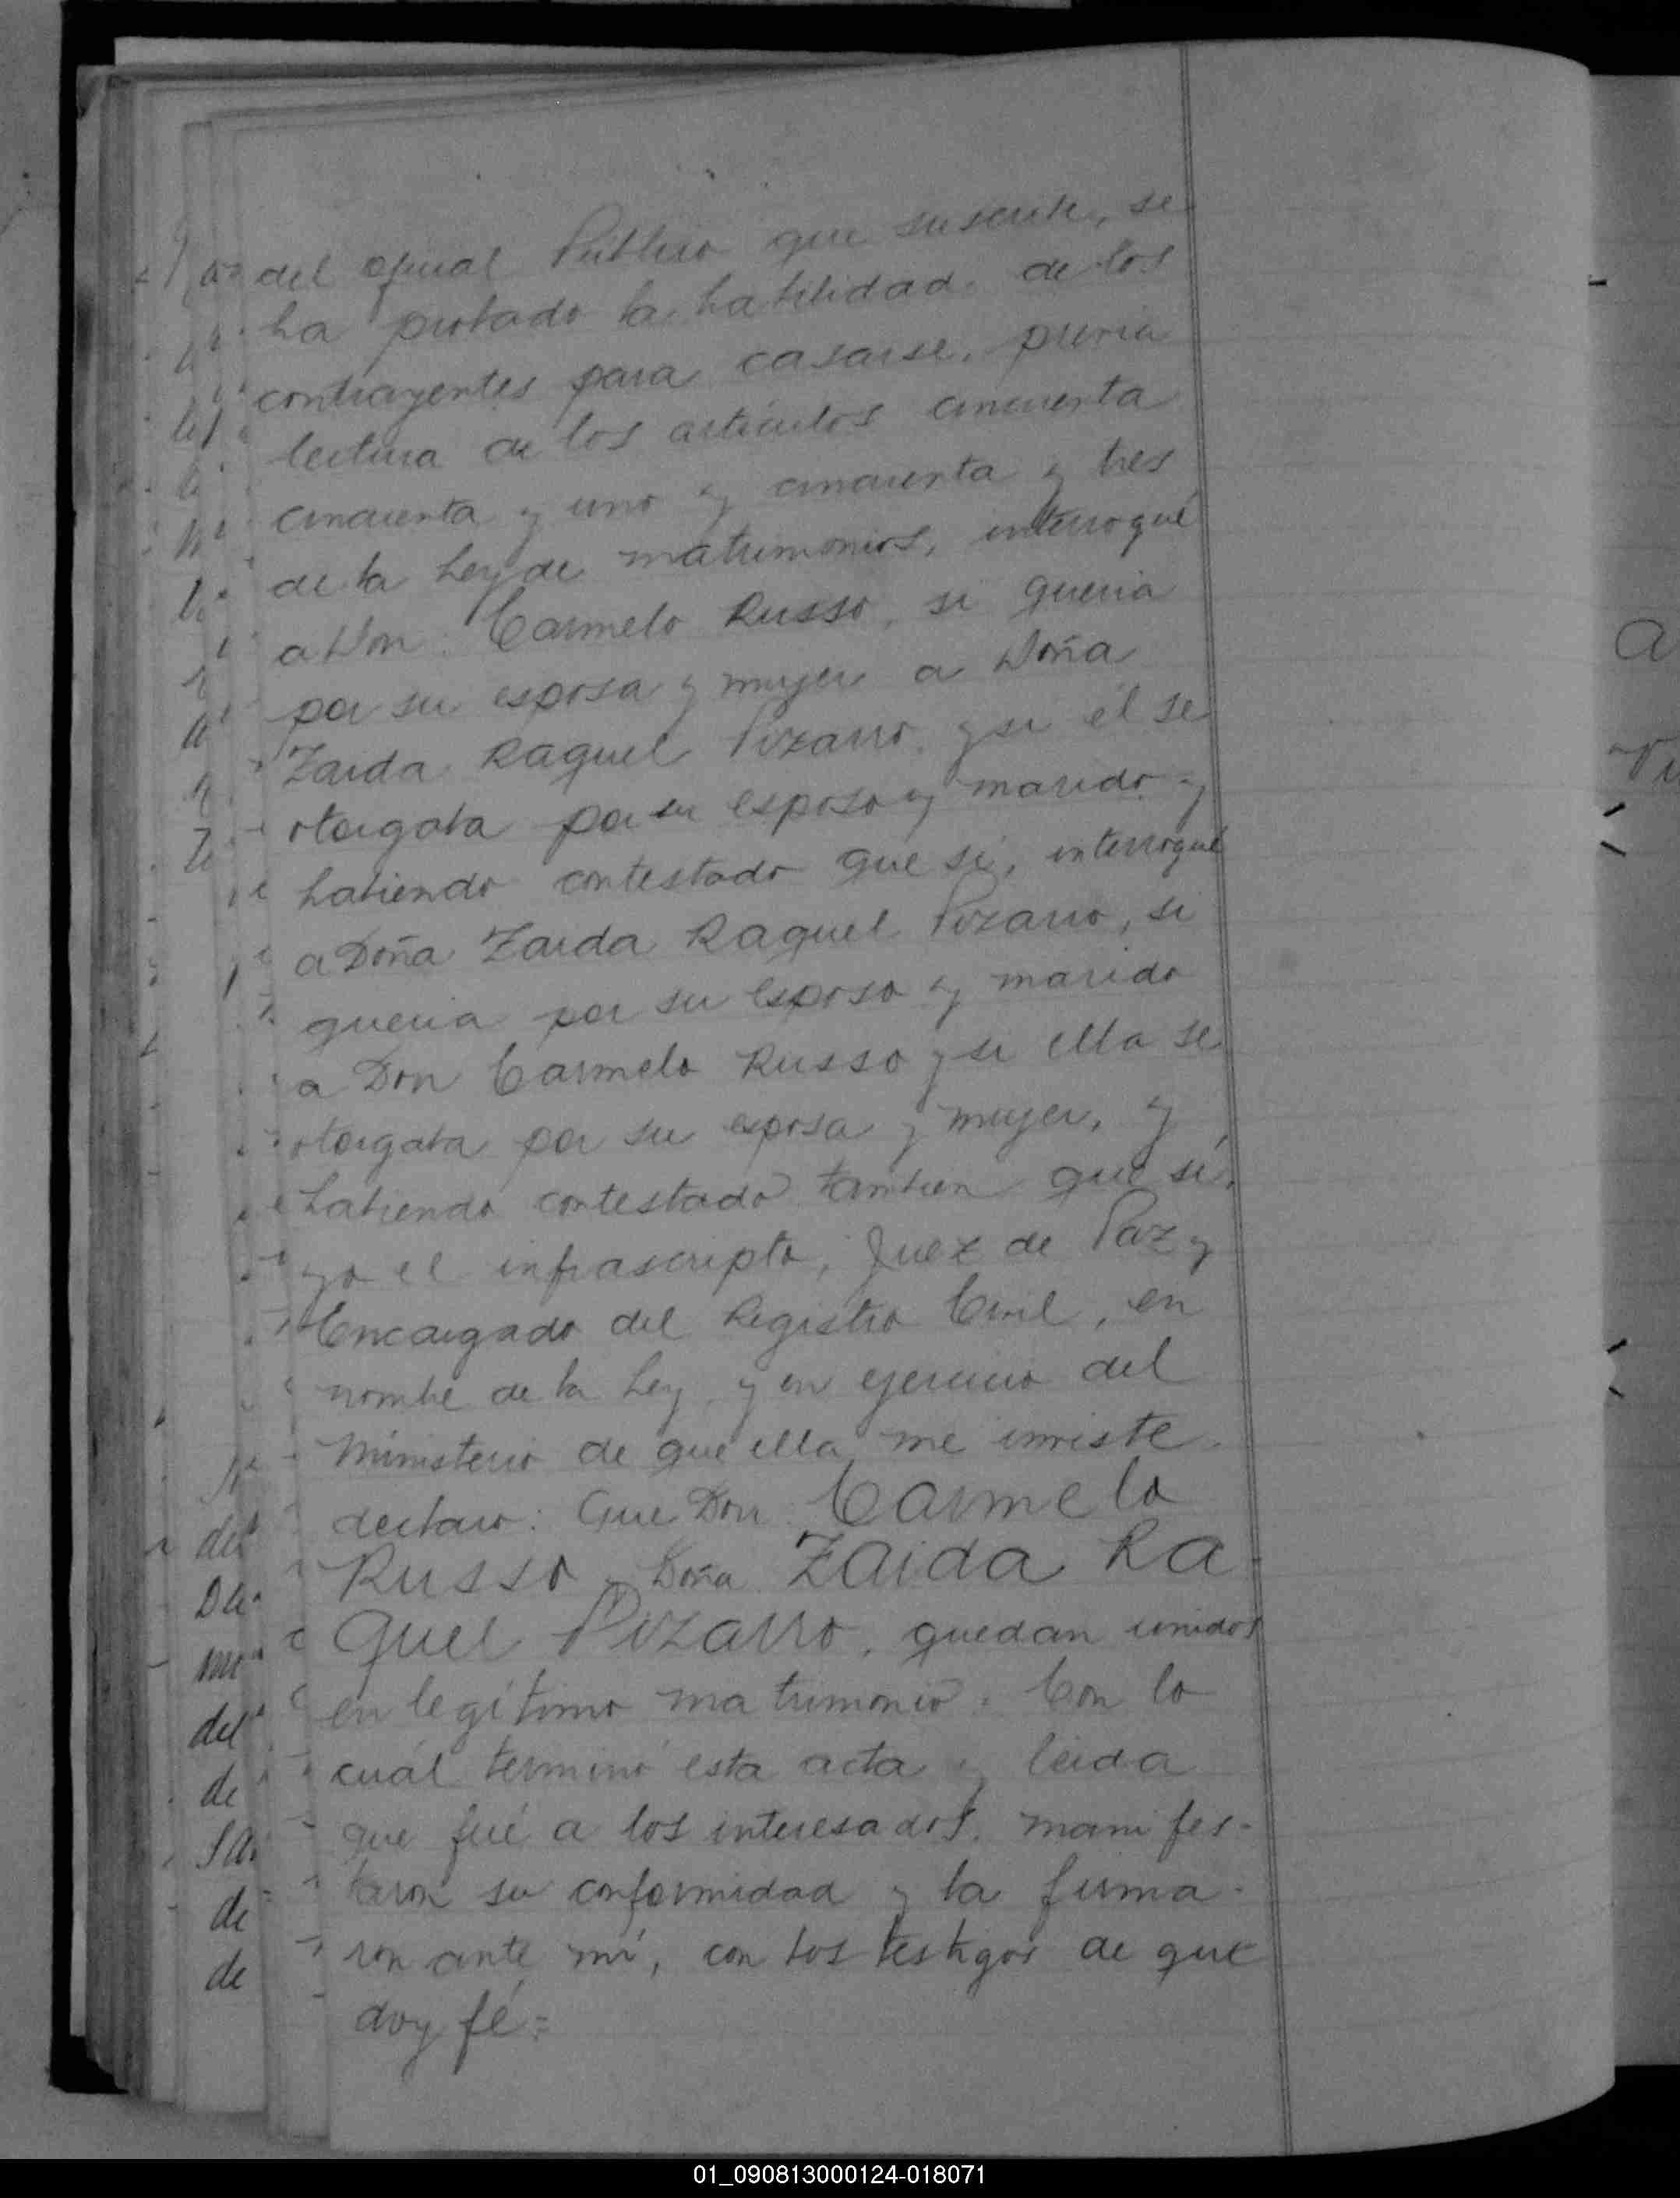 del oficial Público que suscribe, se
ha probado la habilidad de los
contrayentes para casarse, previa
lectura de los artículos cincuenta
cincuenta y uno y cincuenta y tres
de la Ley de matrimonios, interrogué
a Don Carmelo Russo, si queria
por su esposa y mujer a Doña
Zaida Raquel Pizarro y si el se
otorgaba por su esposo y marido y
habiendo contestado que sí, interrogué
a Doña Zaida Raquel Pizarro, si
queria por su esposo y marido
a Don Carmelo Russo y si ella se
otorgaba por su esposa y mujer, y
habiendo contestado tambien que sí,
yo el infrascripto, Juez de Paz y
Encargado del Registro Civil, en
nombre de la Ley y en ejercicio del
Ministerio de que ella me inviste
declaro: Que Don Carmelo
Russo y Doña Zaida Ra-
quel Pizarro, quedan unidos
en legítimo matrimonio. Con lo
cuál terminó esta acta y leida
que fué a los interesados, manifes-
taron su conformidad y la firma-
ron ante mí, con los testigos de que
doy fé=
del
de
de
de
01_090813000124-018071